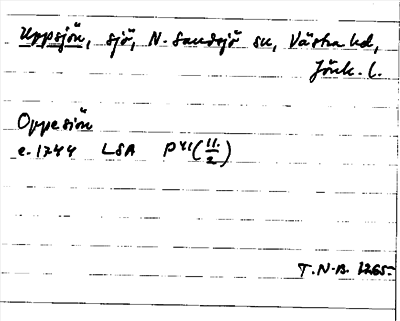 Uppsjön, sjö, N. Sandsjö sn, Västra hd,
Jönk. l.
Oppesiön
c. 1744 LSA P41 (11/2)
T.N.B. 1265-